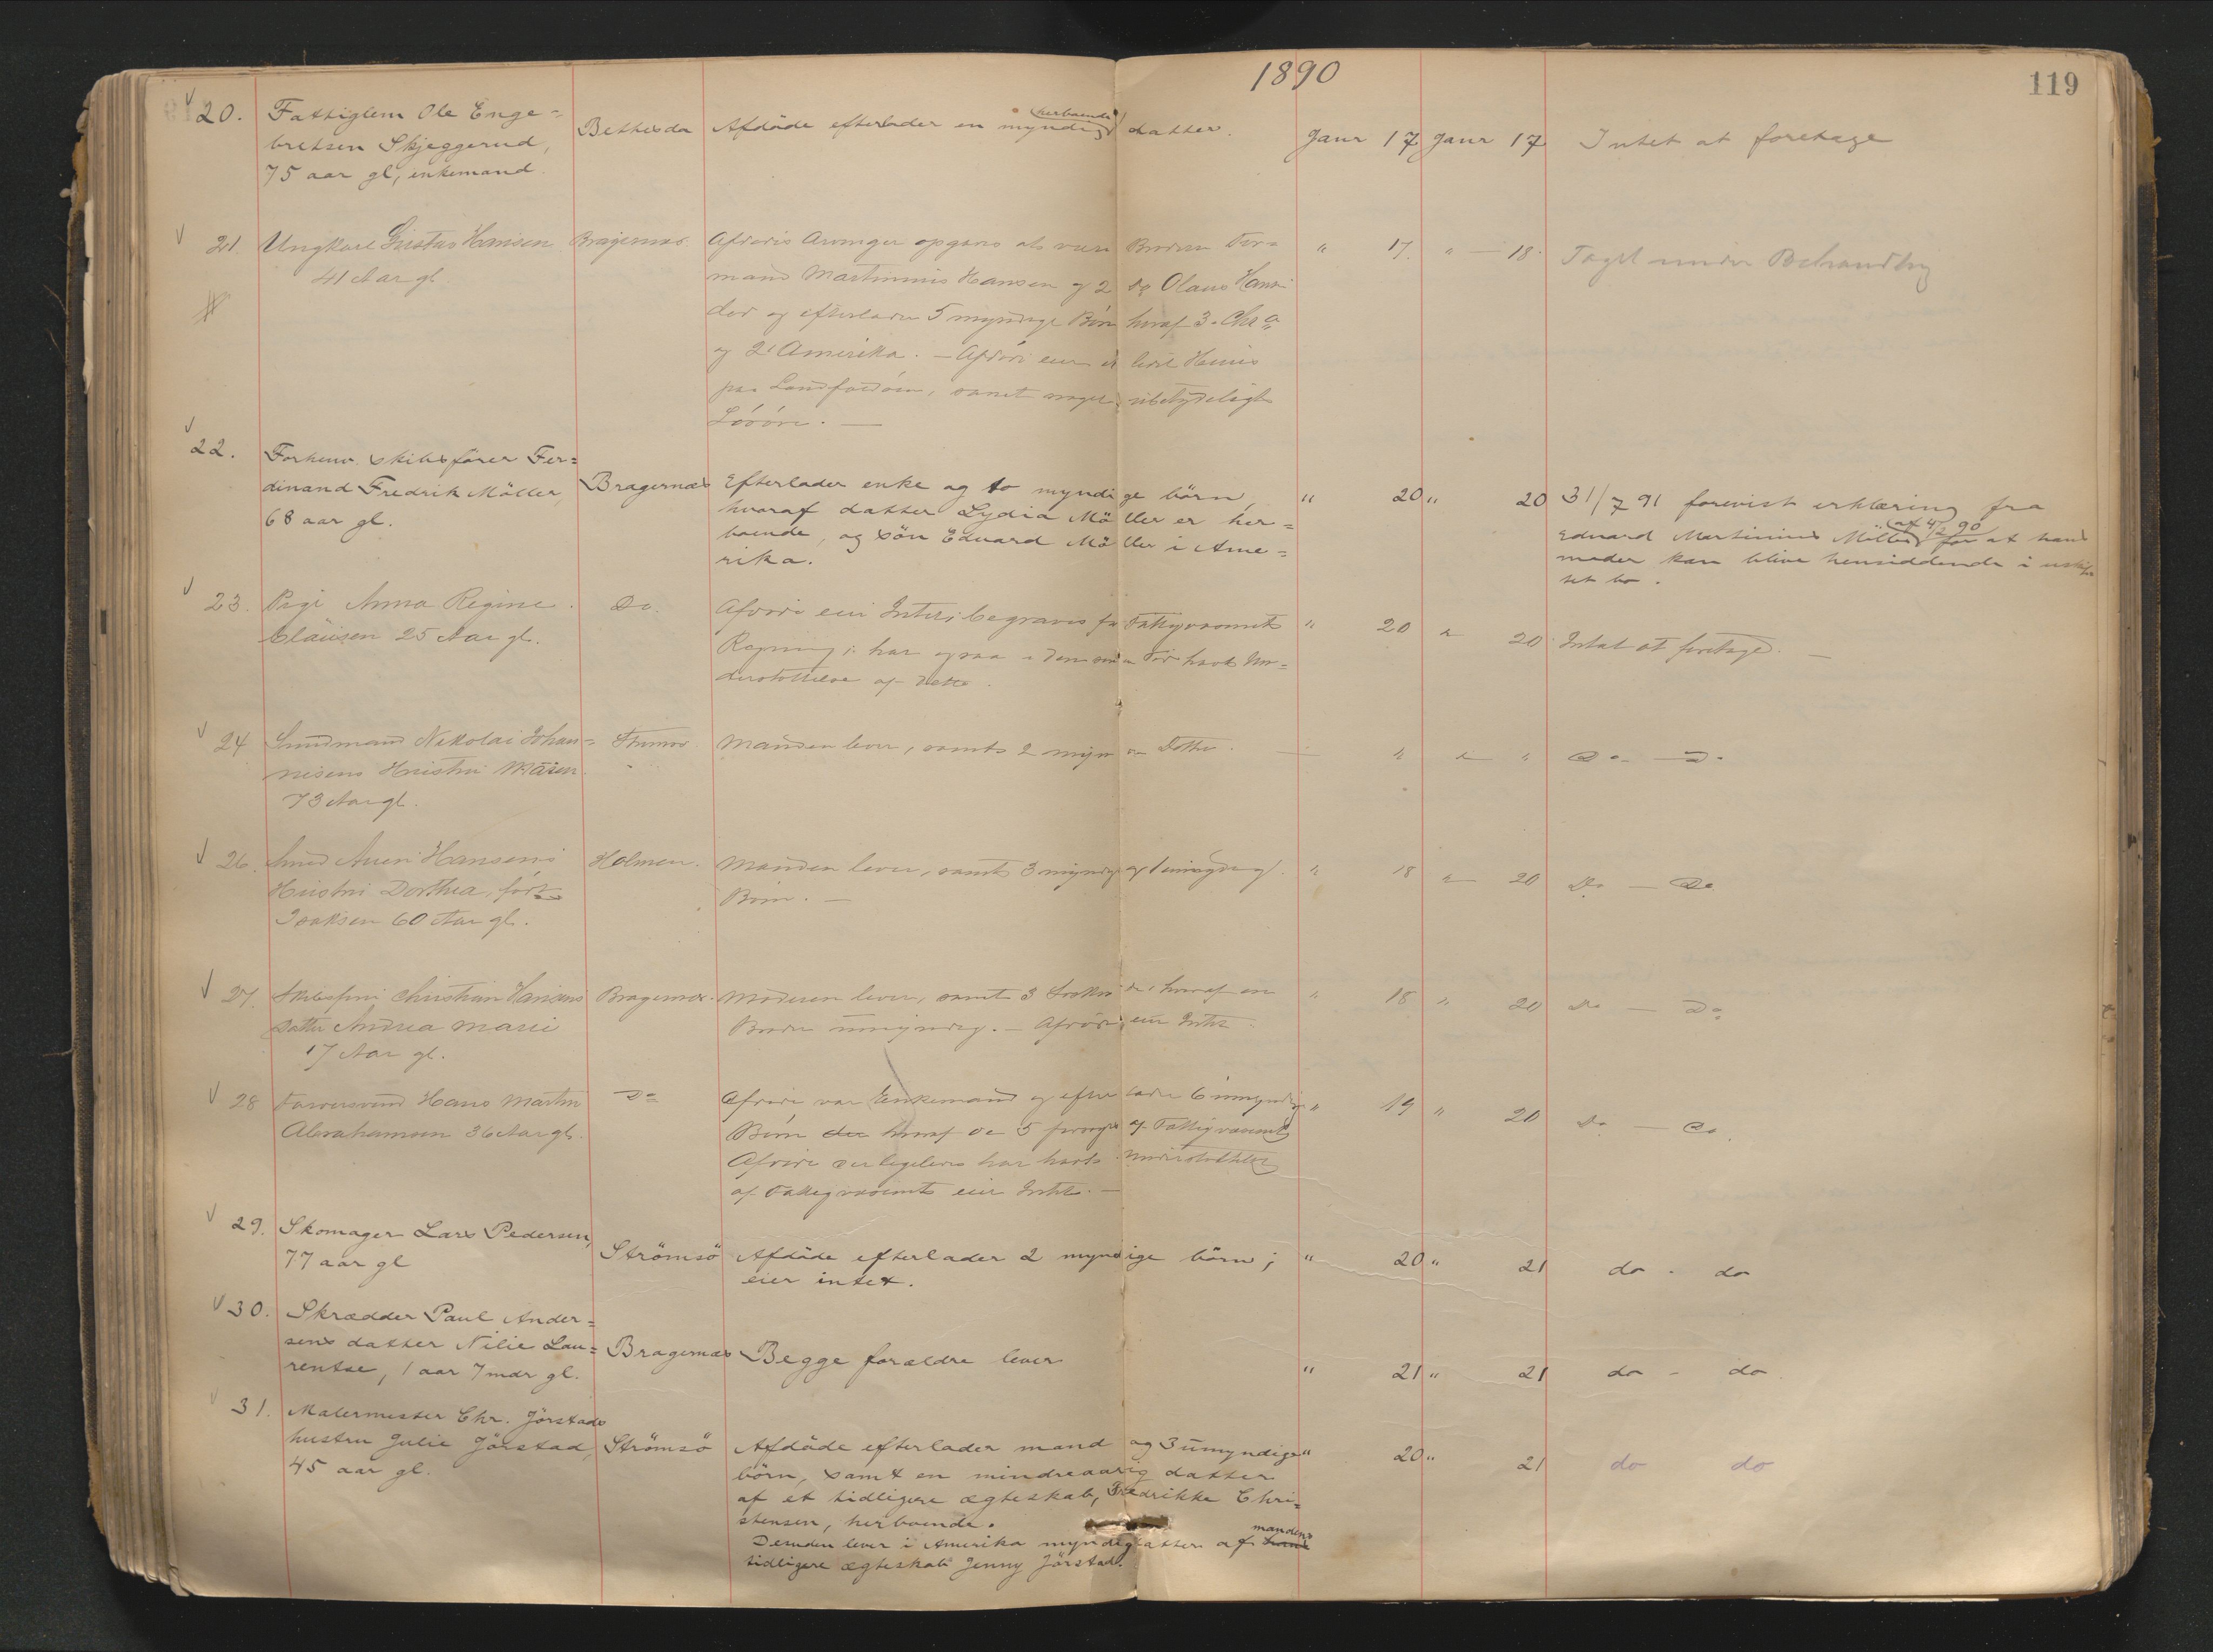 1890
119
20. Fattiglem Ole Enge=
bretsen Skjeggerud,
75 aar gl, enkemand.
Bethesda
herboende
Afdöde efterlader en myndig datter.
Janr 17 Janr 17 Intet at foretage
21. Ungkarl Gustav Hansen
41 Aar gl.
Bragernæs.
Afdödes Arvinger opgives at være Broderen For=
mand Martinius Hansen og 2 do Olaus Hansen
død og efterlader 5 myndige Børn hvoraf 3 i Chra
og 2 i Amerika. — Afdöde eier et lidet Huus
paa Landfaldöen, samt noget ubetydeligt
Lösöre. —
" 17. " — 18. Taget under Behandling
22. Forhenv. skibsförer Fer=
dinand Fredrik Möller,
68 aar gl.
Bragernæs
Efterlader enke og to myndige börn,
hvoraf datter Lydia Möller er her=
boende, og sön Eduard Möller i Ame=
rika.
" 20 " 20
31/7 91 forevist erklæring fra
af 4/2 90
Eduard Martinius Möller for at hans
moder kan blive hensiddende i uskif
tet bo.
23. Pige Anna Regine
Clausen 25 Aar gl.
Do.
Afdöde eier Intet; begraves for Fattigvæsenets
Regning; har ogsaa i den senere Tid havt Un=
derstöttelse af dette.
" 20 " 20 Intet at foretage. —
24 Nikolai Johan=
nesens Hustru Maren
73 Aar gl.
Strömsö
Manden lever, samt 2 Döttre. —
" " " Do — Do
26. Smed Hansens
Hustru Dorthea, född
Isaksen 60 Aar gl.
Holmen.
Manden lever, samt 3 myndige og 1 umyndig
Börn. —
" 18 " 20 Do — Do
27. Skibsförer Christian Hansens
Datter Andrea Marie
17 Aar gl.
Bragernæs.
Moderen lever, samt 3 Sødskende, hvoraf en
Broder umyndig. — Afdöde eier Intet.
" 18 " 20 Do — Do
28 Farversvend Hans Martin
Abrahamsen 36 Aar gl.
Do
Afdöde var Enkemand og efterlader 6 umyndige
Börn der hvoraf de 5 forsørges af Fattigvæsenet
Afdöde der ligeledes har havt Understöttelse
af Fattigvæsenet eier Intet. —
" 19 " 20 Do — Do.
29. Skomager Lars Pedersen,
77 aar gl
Strömsö
Afdöde efterlader 2 myndige börn;
eier intet.
" 20 " 21 do - do
30. Skrædder Paul Ander=
sens datter Nilie Lau=
rentse, 1 aar 7 mdr gl.
Bragernæs
Begge forældre lever
" 21 " 21 do - do
31. Malermester Chr. Jörstads
hustru Julie Jörstad,
45 aar gl.
Strömsö
Afdöde efterlader mand og 3 umyndige
börn, samt en mindreaarig datter
af et tidligere ægteskab, Fredrikke Chri=
stensen, herboende.
mandens
Desuden lever i Amerika myndig datter af hans
tidligere ægteskab Jenny Jörstad.
" 20 " 21 do do